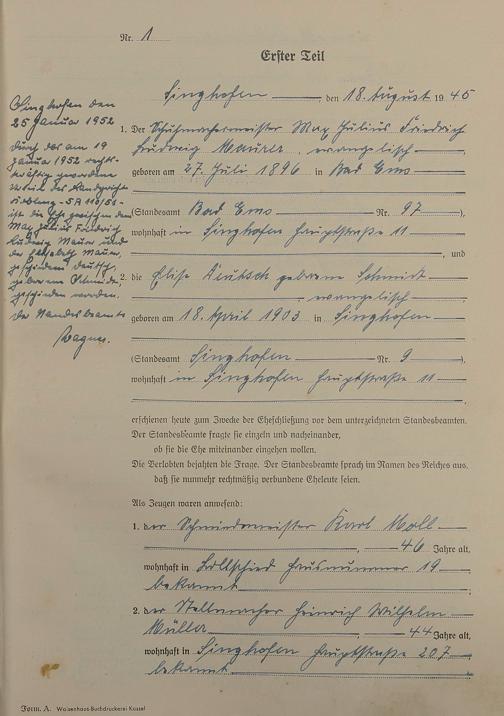 Nr. 1
Erster Teil
Singhofen, den 18. August 1945
Singhofen den
25 Januar 1952
durch das am 19
Januar 1952 rechts-
kräftig gewordene
Urteil des Landgerichts
Koblenz - 5 R 118/51 -
ist die Ehe zwischen dem
Max Julius Friedrich
Ludwig Maurer und
der Maurer,
geschiedene Deutsch
geborene Schmidt,
geschieden worden.
Der Standesbeamte
Wagner.
1. Der Schuhmachermeister Max Julius Friedrich
Ludwig Maurer, evangelisch
geboren am 27. Juli 1896 in Bad Ems
(Standesamt Bad Ems Nr. 97),
wohnhaft in Singhofen Hauptstraße 11
, und
2. die Elise Deutsch geborene Schmidt
evangelisch
geboren am 18. April 1903 in Singhofen
(Standesamt Singhofen Nr. 9),
wohnhaft in Singhofen Hauptstraße 11
erschienen heute zum Zwecke der Eheschließung vor dem unterzeichneten Standesbeamten.
Der Standesbeamte fragte sie einzeln und nacheinander,
ob sie die Ehe miteinander eingehen wollen.
Die Verlobten bejahten die Frage. Der Standesbeamte sprach im Namen des Reiches aus,
daß sie nunmehr rechtmäßig verbundene Eheleute seien.
Als Zeugen waren anwesend:
1. der Schmiedemeister Karl Moll
, 46 Jahre alt,
wohnhaft in Lollschied Hausnummer 19
bekannt
2. der Stellmacher Heinrich Wilhelm
Müller, 44 Jahre alt,
wohnhaft in Singhofen Hauptstraße 207
bekannt
Form. A. Waisenhaus-Buchdruckerei Kassel